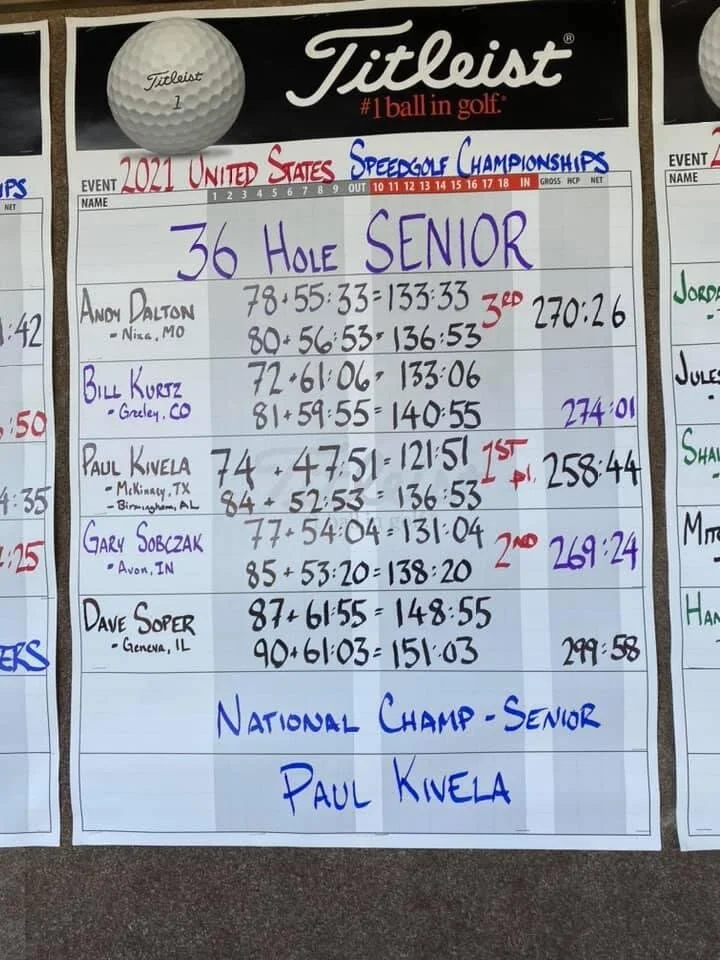 Titleist
1
Titleist®
#1 ball in golf.®
EVENT 2021 UNITED STATES SPEEDGOLF CHAMPIONSHIPS
NAME 1 2 3 4 5 6 7 8 9 OUT 10 11 12 13 14 15 16 17 18 IN GROSS HCP NET
36 HOLE SENIOR
ANDY DALTON 78+55:33=133:33 3RD 270:26
- Nixa, MO 80+56:53=136:53
BILL KURTZ 72+61:06=133:06
- Greeley, CO 81+59:55=140:55 274:01
PAUL KIVELA 74+47:51=121:51 1ST pl. 258:44
- McKinney, TX
- Birmingham, AL 84+52:53=136:53
GARY SOBCZAK 77+54:04=131:04 2ND 269:24
- Avon, IN 85+53:20=138:20
DAVE SOPER 87+61:55=148:55
- Geneva, IL 90+61:03=151:03 299:58
NATIONAL CHAMP - SENIOR
PAUL KIVELA
IPS
NET
:42
:50
4:35
:25
ERS
EVENT 2
NAME
JORDA
JULES
SHA
MIT
HAN